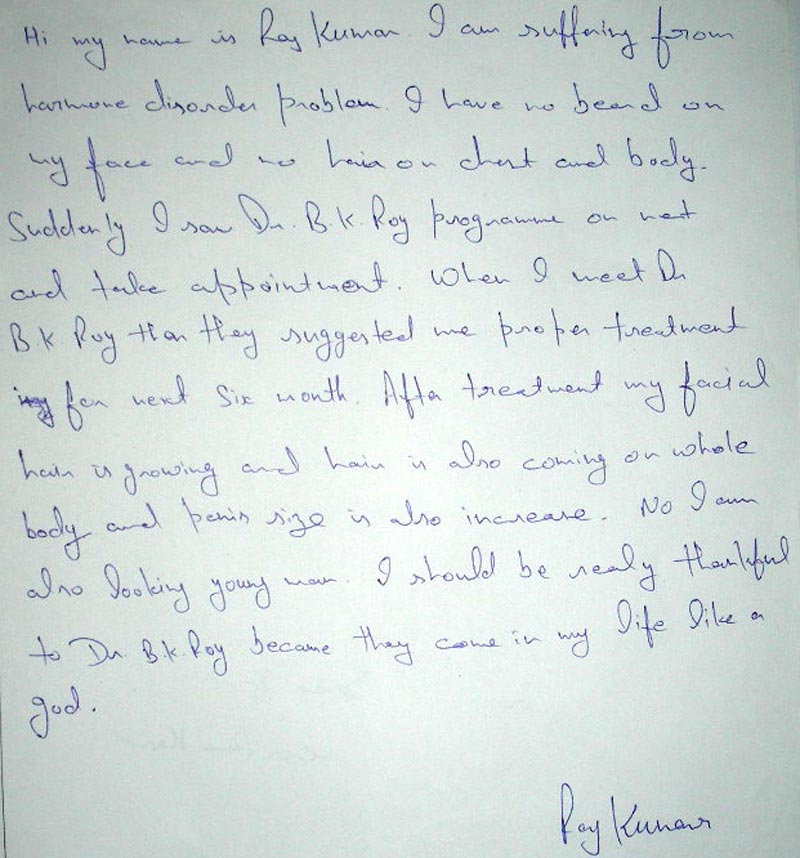 Hi my name is Raj Kumar. I am suffering from
harmone disorder problem. I have no beard on
my face and no hair on chest and body.
Suddenly I saw Dr. B.K. Roy programme on net
and take appointment. When I meet Dr
B.K. Roy than they suggested me proper treatment
for next six month. After treatment my facial
hair is growing and hair is also coming on whole
body and penis size is also increase. No I am
also looking young man. I should be realy thankful
to Dr. B.K. Roy because they come in my life like a
god.
Raj Kumar